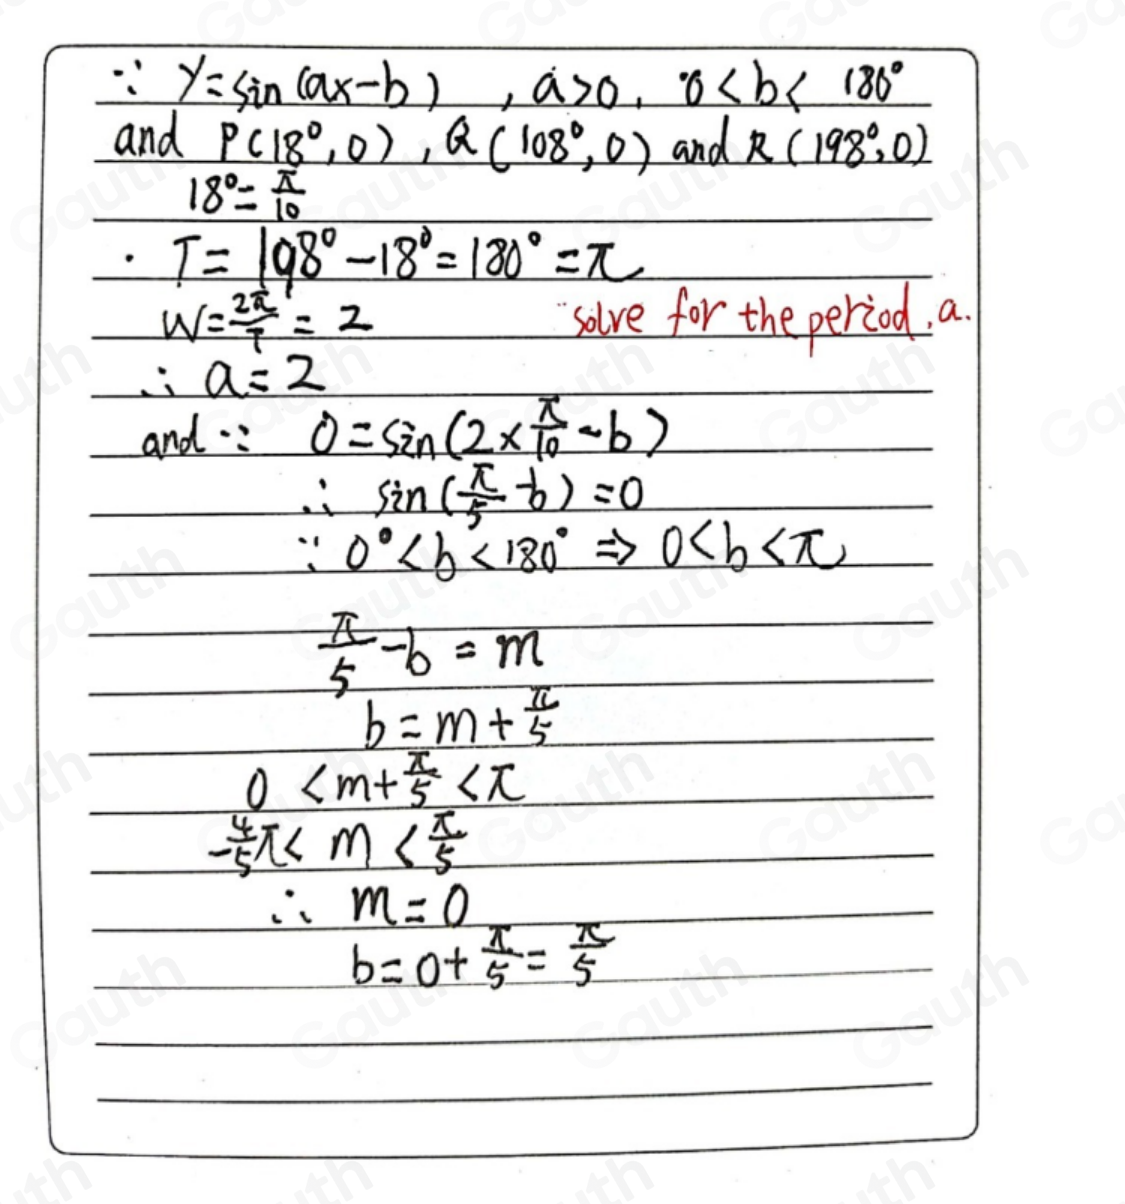 ∵ y=sin(ax-b) , a>0, 0<b< 180°
and P(18°,0), Q(108°,0) and R(198°,0)
18°=π/10
· T= 198°-18°=180°=π
W=2π/T=2 solve for the period, a.
∴ a=2
and ∵ 0=sin(2×π/10-b)
∴ sin(π/5-b)=0
∵ 0°<b<180° ⇒ 0<b<π
π/5-b=m
b=m+π/5
0<m+π/5<π
-4/5π<m<π/5
∴ m=0
b=0+π/5=π/5
Gauth